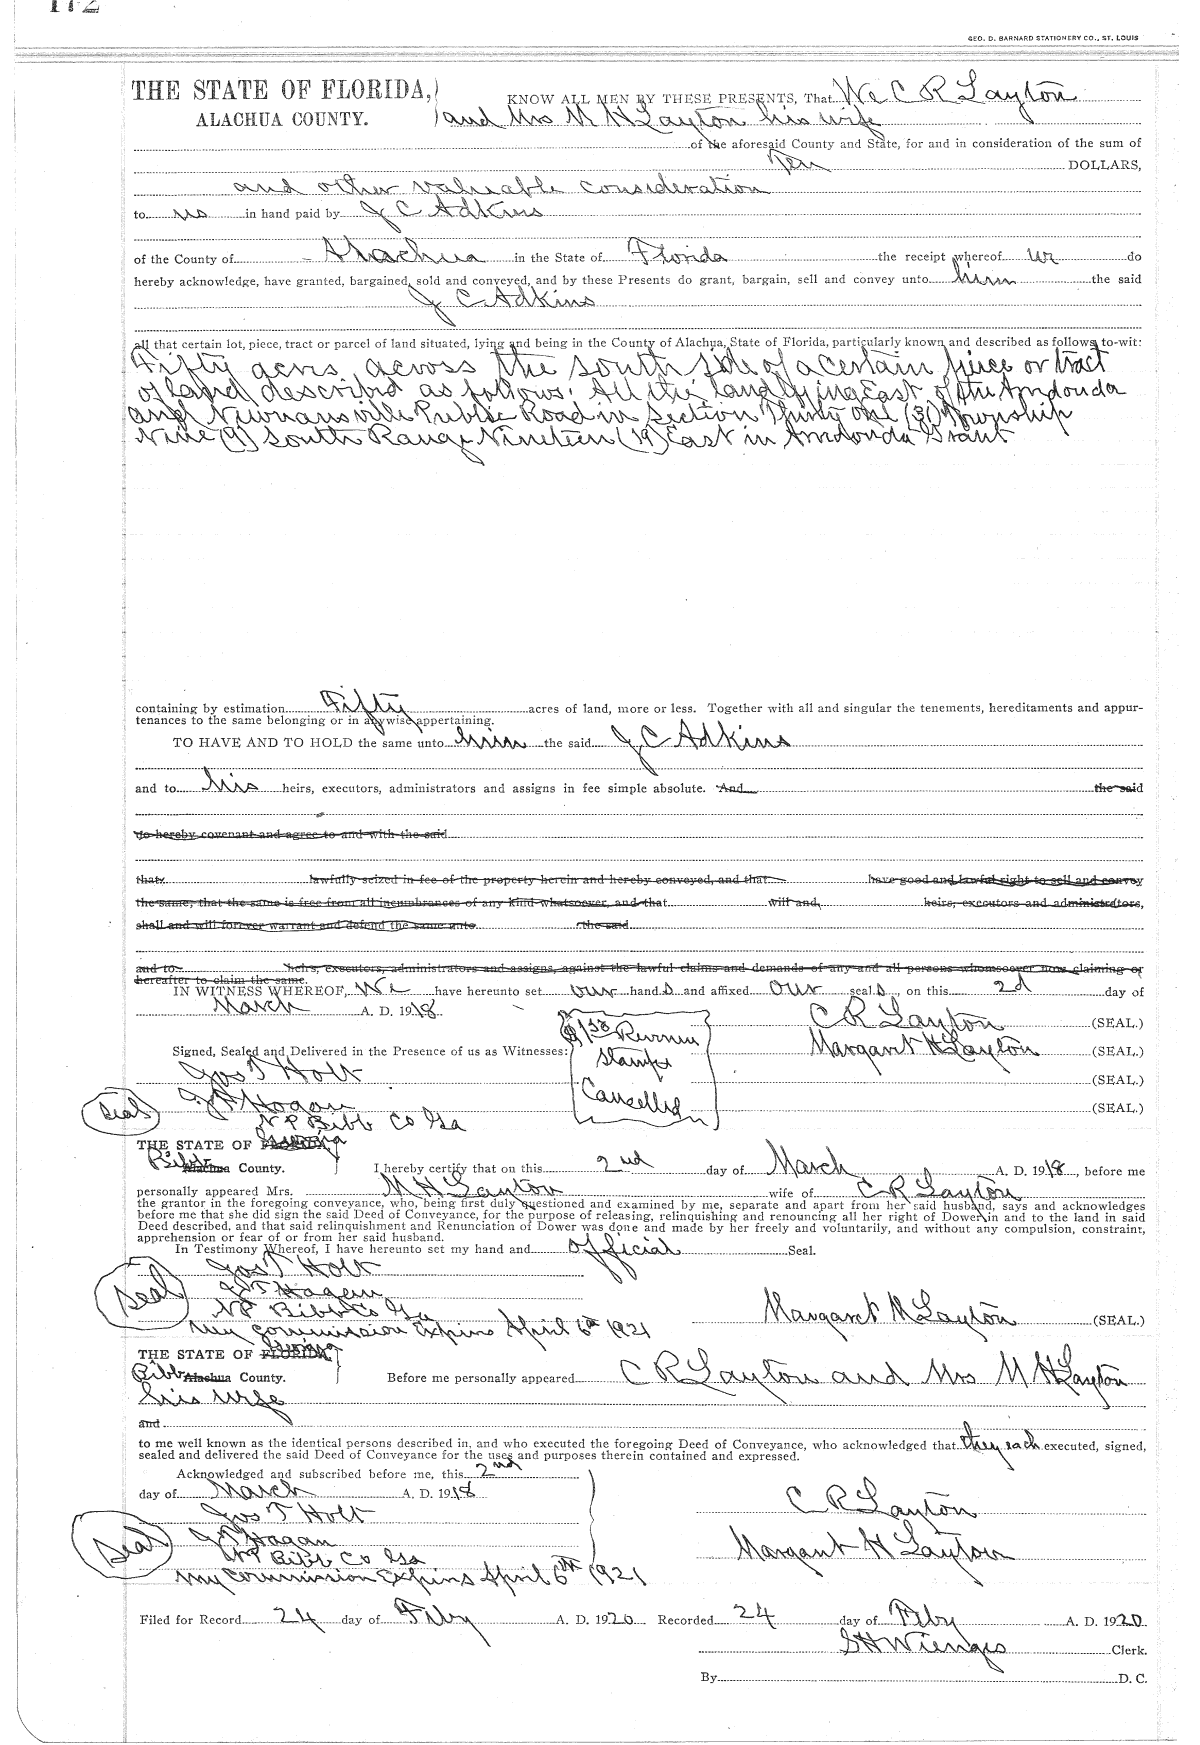 172
GEO. D. BARNARD STATIONERY CO., ST. LOUIS
THE STATE OF FLORIDA,
ALACHUA COUNTY.
KNOW ALL MEN BY THESE PRESENTS, That We C R Layton
and Mrs M H Layton his wife
of the aforesaid County and State, for and in consideration of the sum of
Ten DOLLARS,
and other valuable consideration
to us in hand paid by J C Adkins
of the County of Alachua in the State of Florida the receipt whereof we do
hereby acknowledge, have granted, bargained, sold and conveyed, and by these Presents do grant, bargain, sell and convey unto him the said
J C Adkins
all that certain lot, piece, tract or parcel of land situated, lying and being in the County of Alachua, State of Florida, particularly known and described as follows, to-wit:
Fifty acres across the south side of a certain piece or tract
of land described as follows: All the land lying East of the Arredonda
and Newnansville Public Road in Section Thirty One (31) Township
Nine (9) South Range Nineteen (19) East in Arredonda Grant
containing by estimation Fifty acres of land, more or less. Together with all and singular the tenements, hereditaments and appur-
tenances to the same belonging or in anywise appertaining.
TO HAVE AND TO HOLD the same unto him the said J C Adkins
and to his heirs, executors, administrators and assigns in fee simple absolute. And the said
do hereby covenant and agree to and with the said
that lawfully seized in fee of the property herein and hereby conveyed, and that have good and lawful right to sell and convey
the same; that the same is free from all incumbrances of any kind whatsoever, and that will and, heirs, executors and administrators,
shall and will forever warrant and defend the same unto the said
and to heirs, executors, administrators and assigns, against the lawful claims and demands of any and all persons whomsoever now claiming or
hereafter to claim the same.
IN WITNESS WHEREOF, We have hereunto set our hands and affixed our seals, on this 2d day of
March A. D. 1918
C R Layton (SEAL.)
$1 50 Revenue
Stamps
Cancelled
Signed, Sealed and Delivered in the Presence of us as Witnesses:
Margaret H Layton (SEAL.)
Jos T Holt (SEAL.)
Seal J T Hogan (SEAL.)
N P Bibb Co Ga
THE STATE OF FLORIDA Georgia
Bibb Alachua County.
I hereby certify that on this 2nd day of March A. D. 1918, before me
personally appeared Mrs. M H Layton wife of C R Layton
the grantor in the foregoing conveyance, who, being first duly questioned and examined by me, separate and apart from her said husband, says and acknowledges
before me that she did sign the said Deed of Conveyance, for the purpose of releasing, relinquishing and renouncing all her right of Dower in and to the land in said
Deed described, and that said relinquishment and Renunciation of Dower was done and made by her freely and voluntarily, and without any compulsion, constraint,
apprehension or fear of or from her said husband.
In Testimony Whereof, I have hereunto set my hand and official Seal.
Jos T Holt
Seal J T Hagan
N P Bibb Co Ga
Margaret H Layton (SEAL.)
My commission Expires April 6th 1921
THE STATE OF FLORIDA Georgia
Bibb Alachua County.
Before me personally appeared C R Layton and Mrs M H Layton
his wife
and
to me well known as the identical persons described in, and who executed the foregoing Deed of Conveyance, who acknowledged that they each executed, signed,
sealed and delivered the said Deed of Conveyance for the uses and purposes therein contained and expressed.
Acknowledged and subscribed before me, this 2nd
day of March A. D. 1918
Jos T Holt
C R Layton
Seal J T Hagan
N P Bibb Co Ga
Margaret H Layton
My Commission Expires April 6th 1921
Filed for Record 24 day of Feby A. D. 1920 Recorded 24 day of Feby A. D. 1920
S H Wienges Clerk.
By D. C.